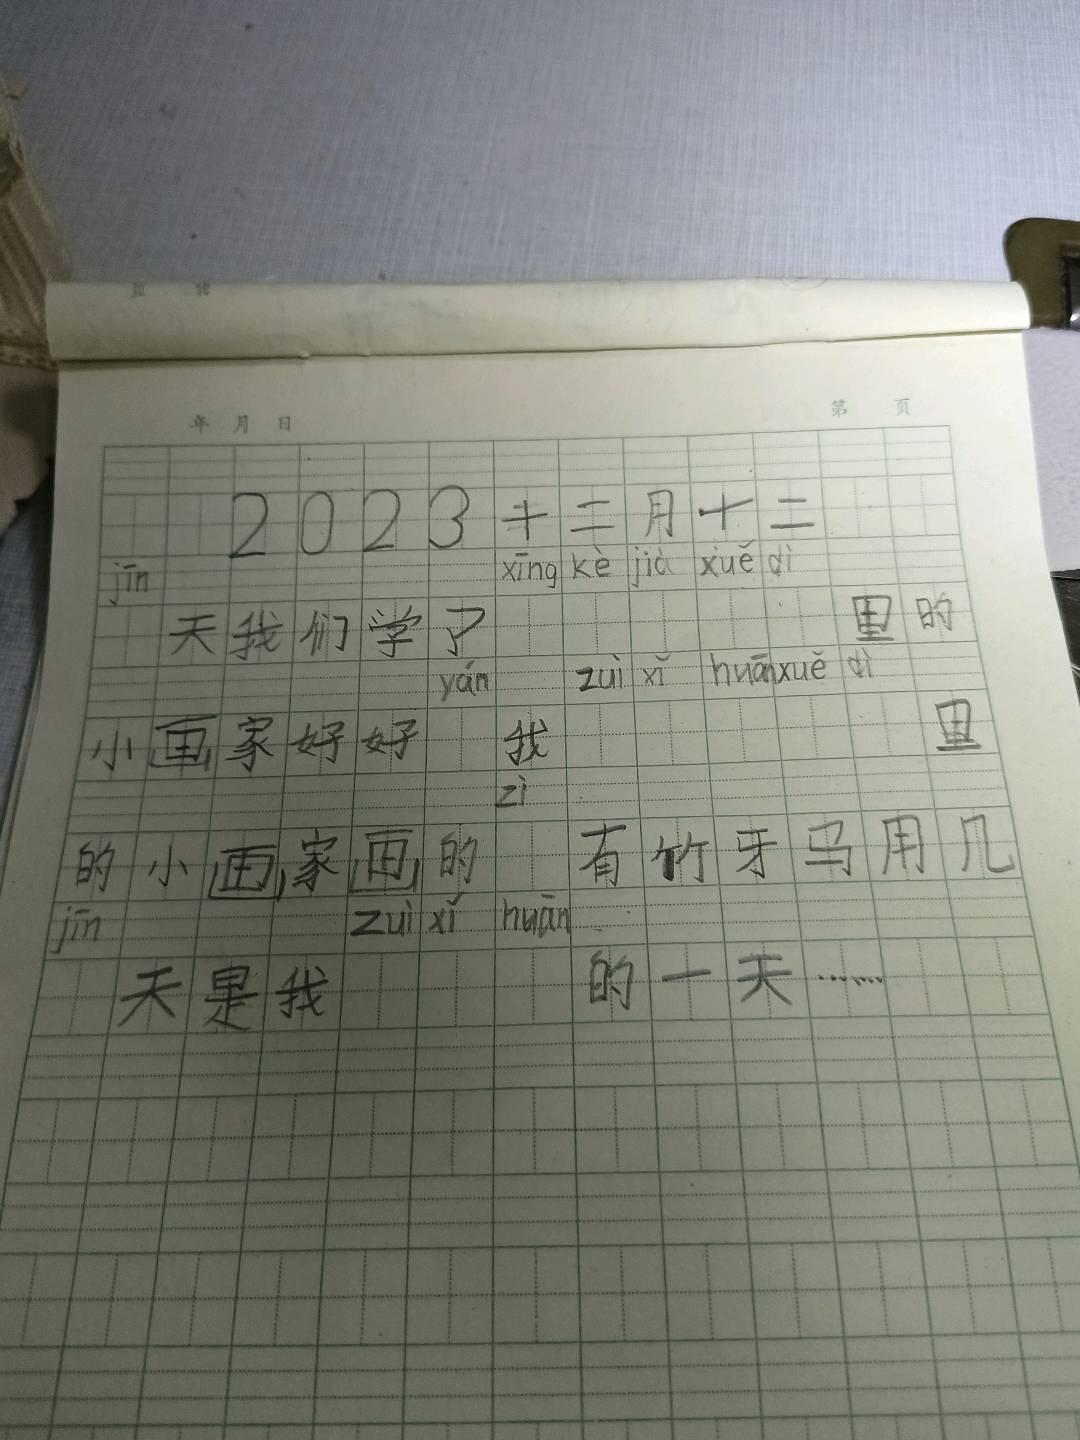 年 月 日
第 页
2023十二月十二
jīn xīng kè jià xuě dì
天我们学了 里的
yán zuì xǐ huān xuě dì
小画家好好 我 里
zì
的小画家画的 有竹牙马用几
jīn zuì xǐ huān
天是我 的一天……